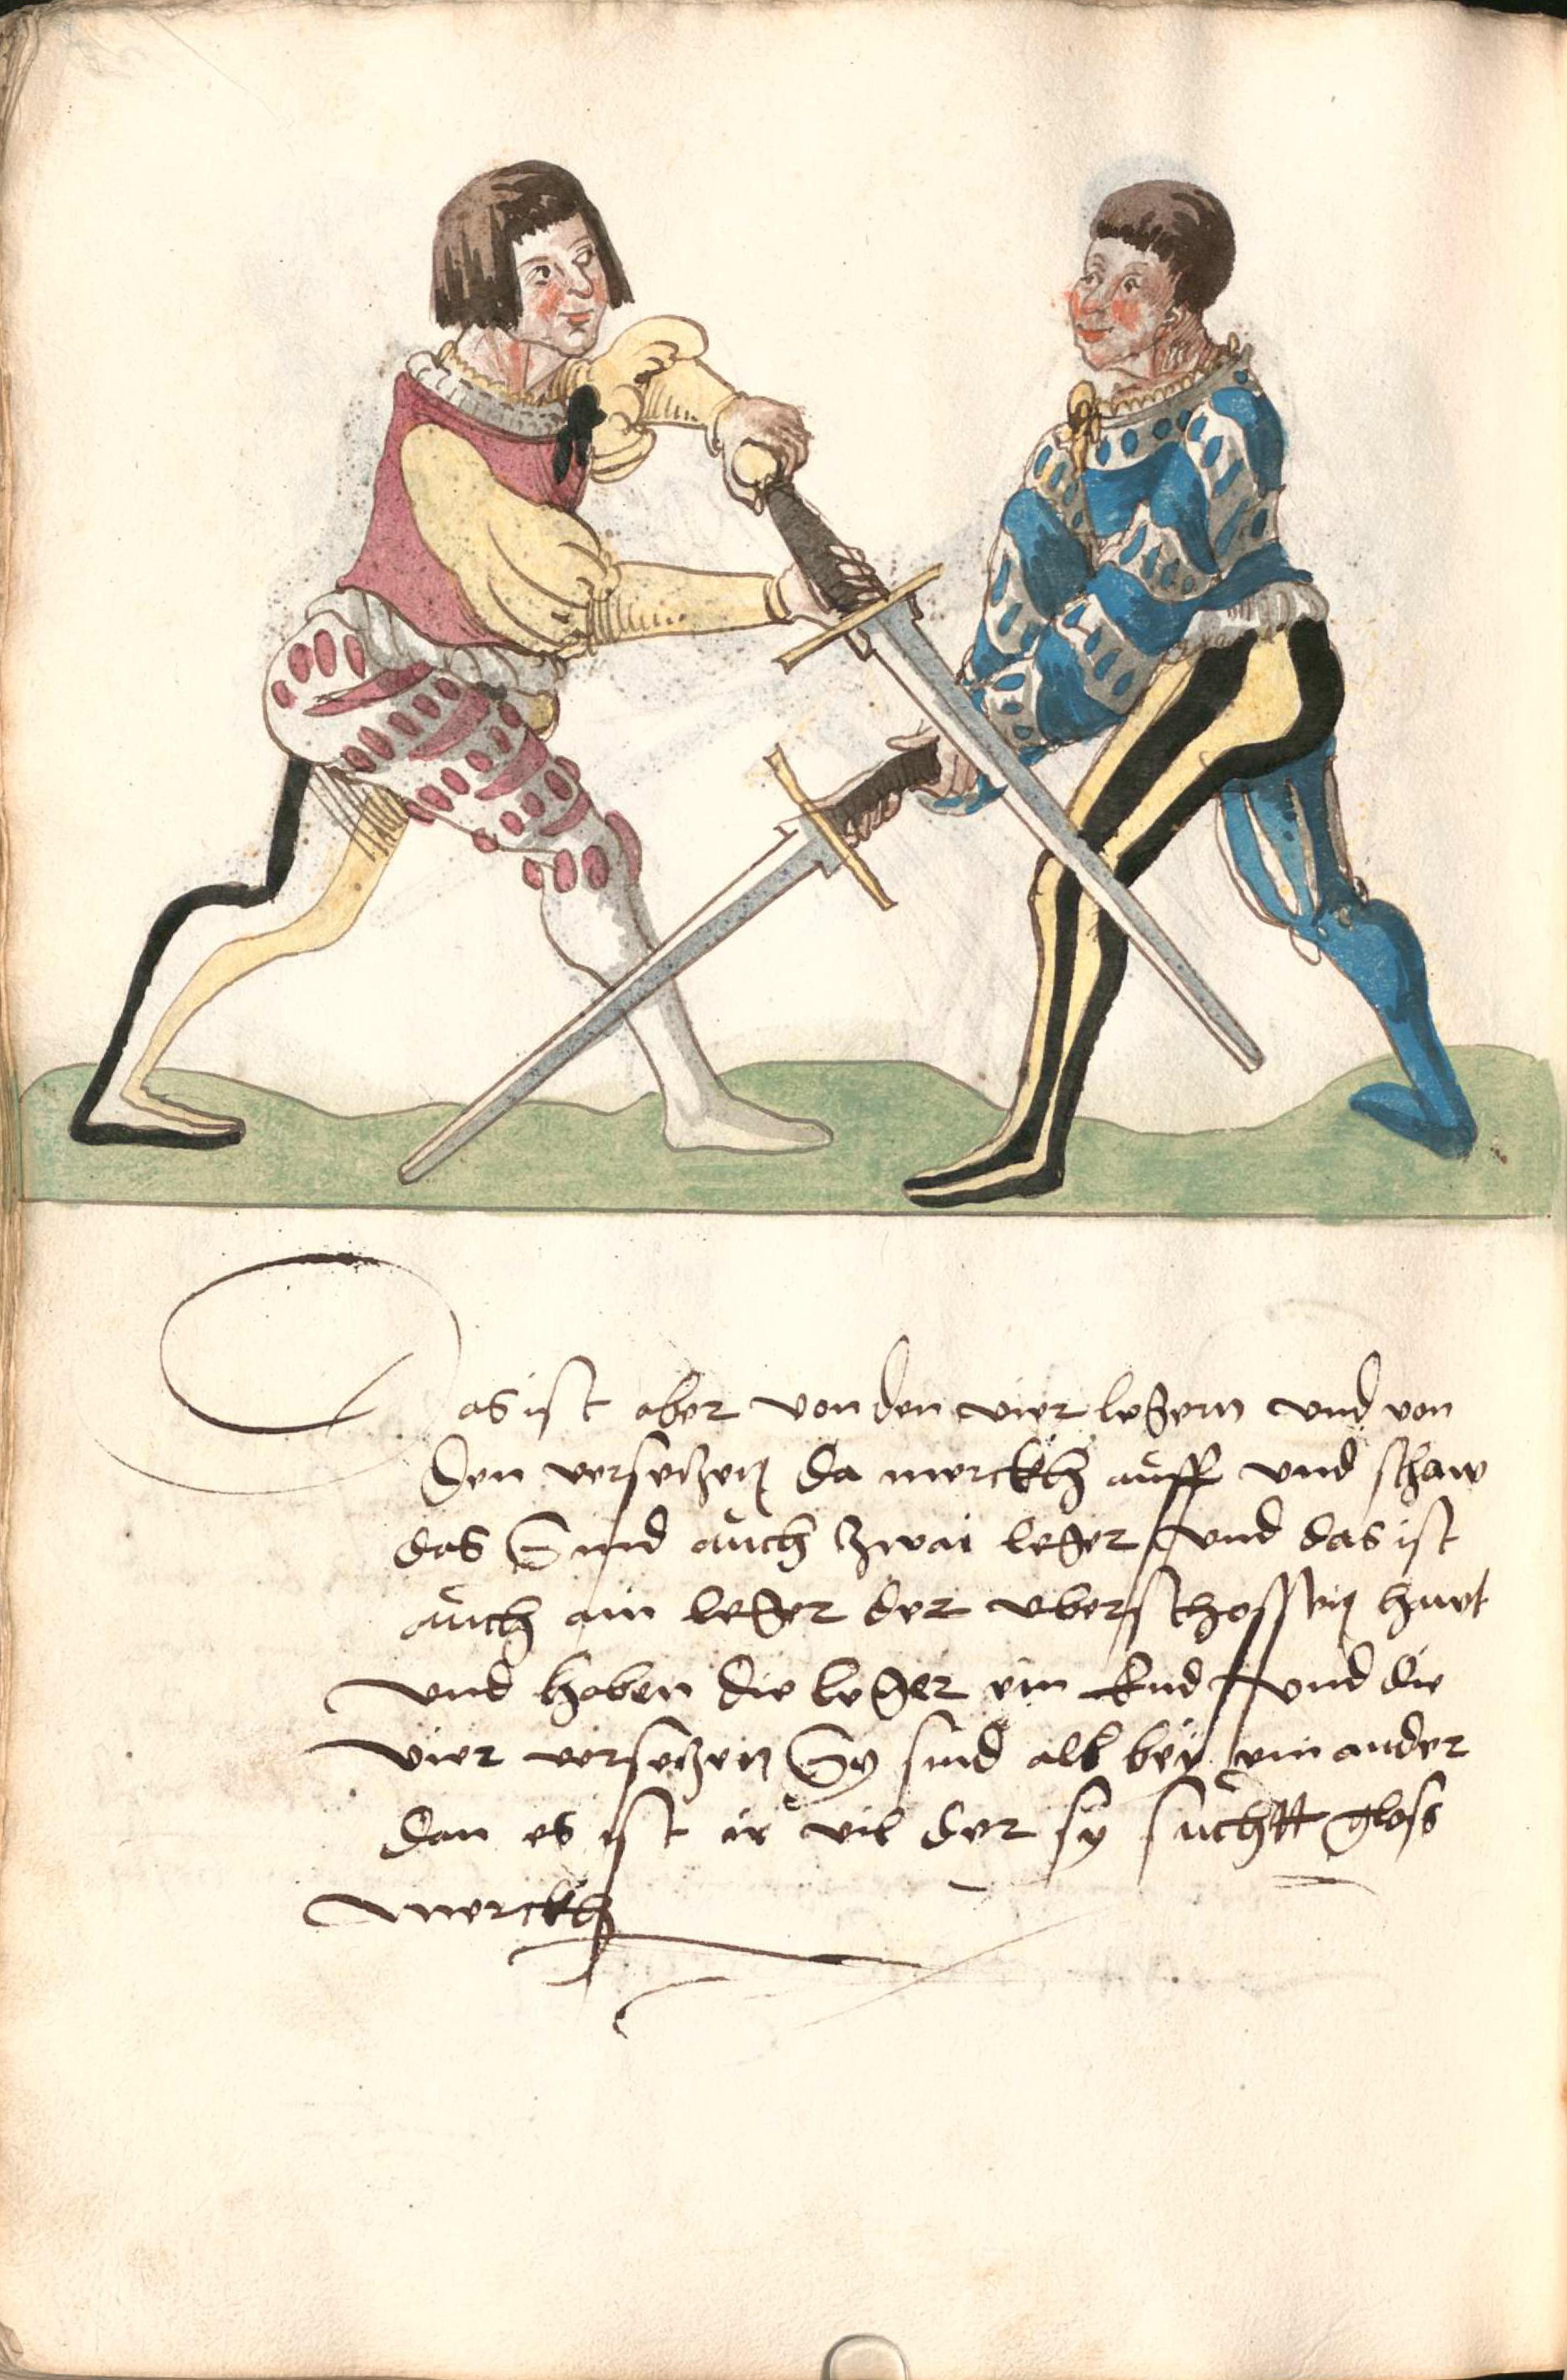 Das ist aber von den vier legern und von
den versetzen da merckh auff und schaw
das Sind auch zwai leger und das ist
auch ain leger der uberschossen hawt
und haben die leger ein End und die
vier versetzen Sy sind all bey ein ander
dan es ist ir vil der sy suchtt gloss
merckh